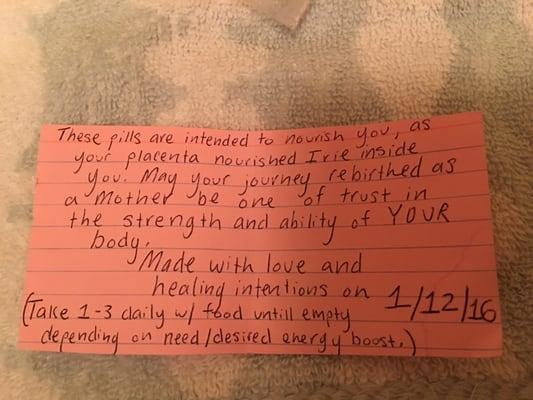 These pills are intended to nourish you, as
your placenta nourished Irie inside
you. May your journey rebirthed as
a Mother be one of trust in
the strength and ability of YOUR
body.
Made with love and
healing intentions on 1/12/16
(Take 1-3 daily w/ food untill empty
depending on need/desired energy boost.)